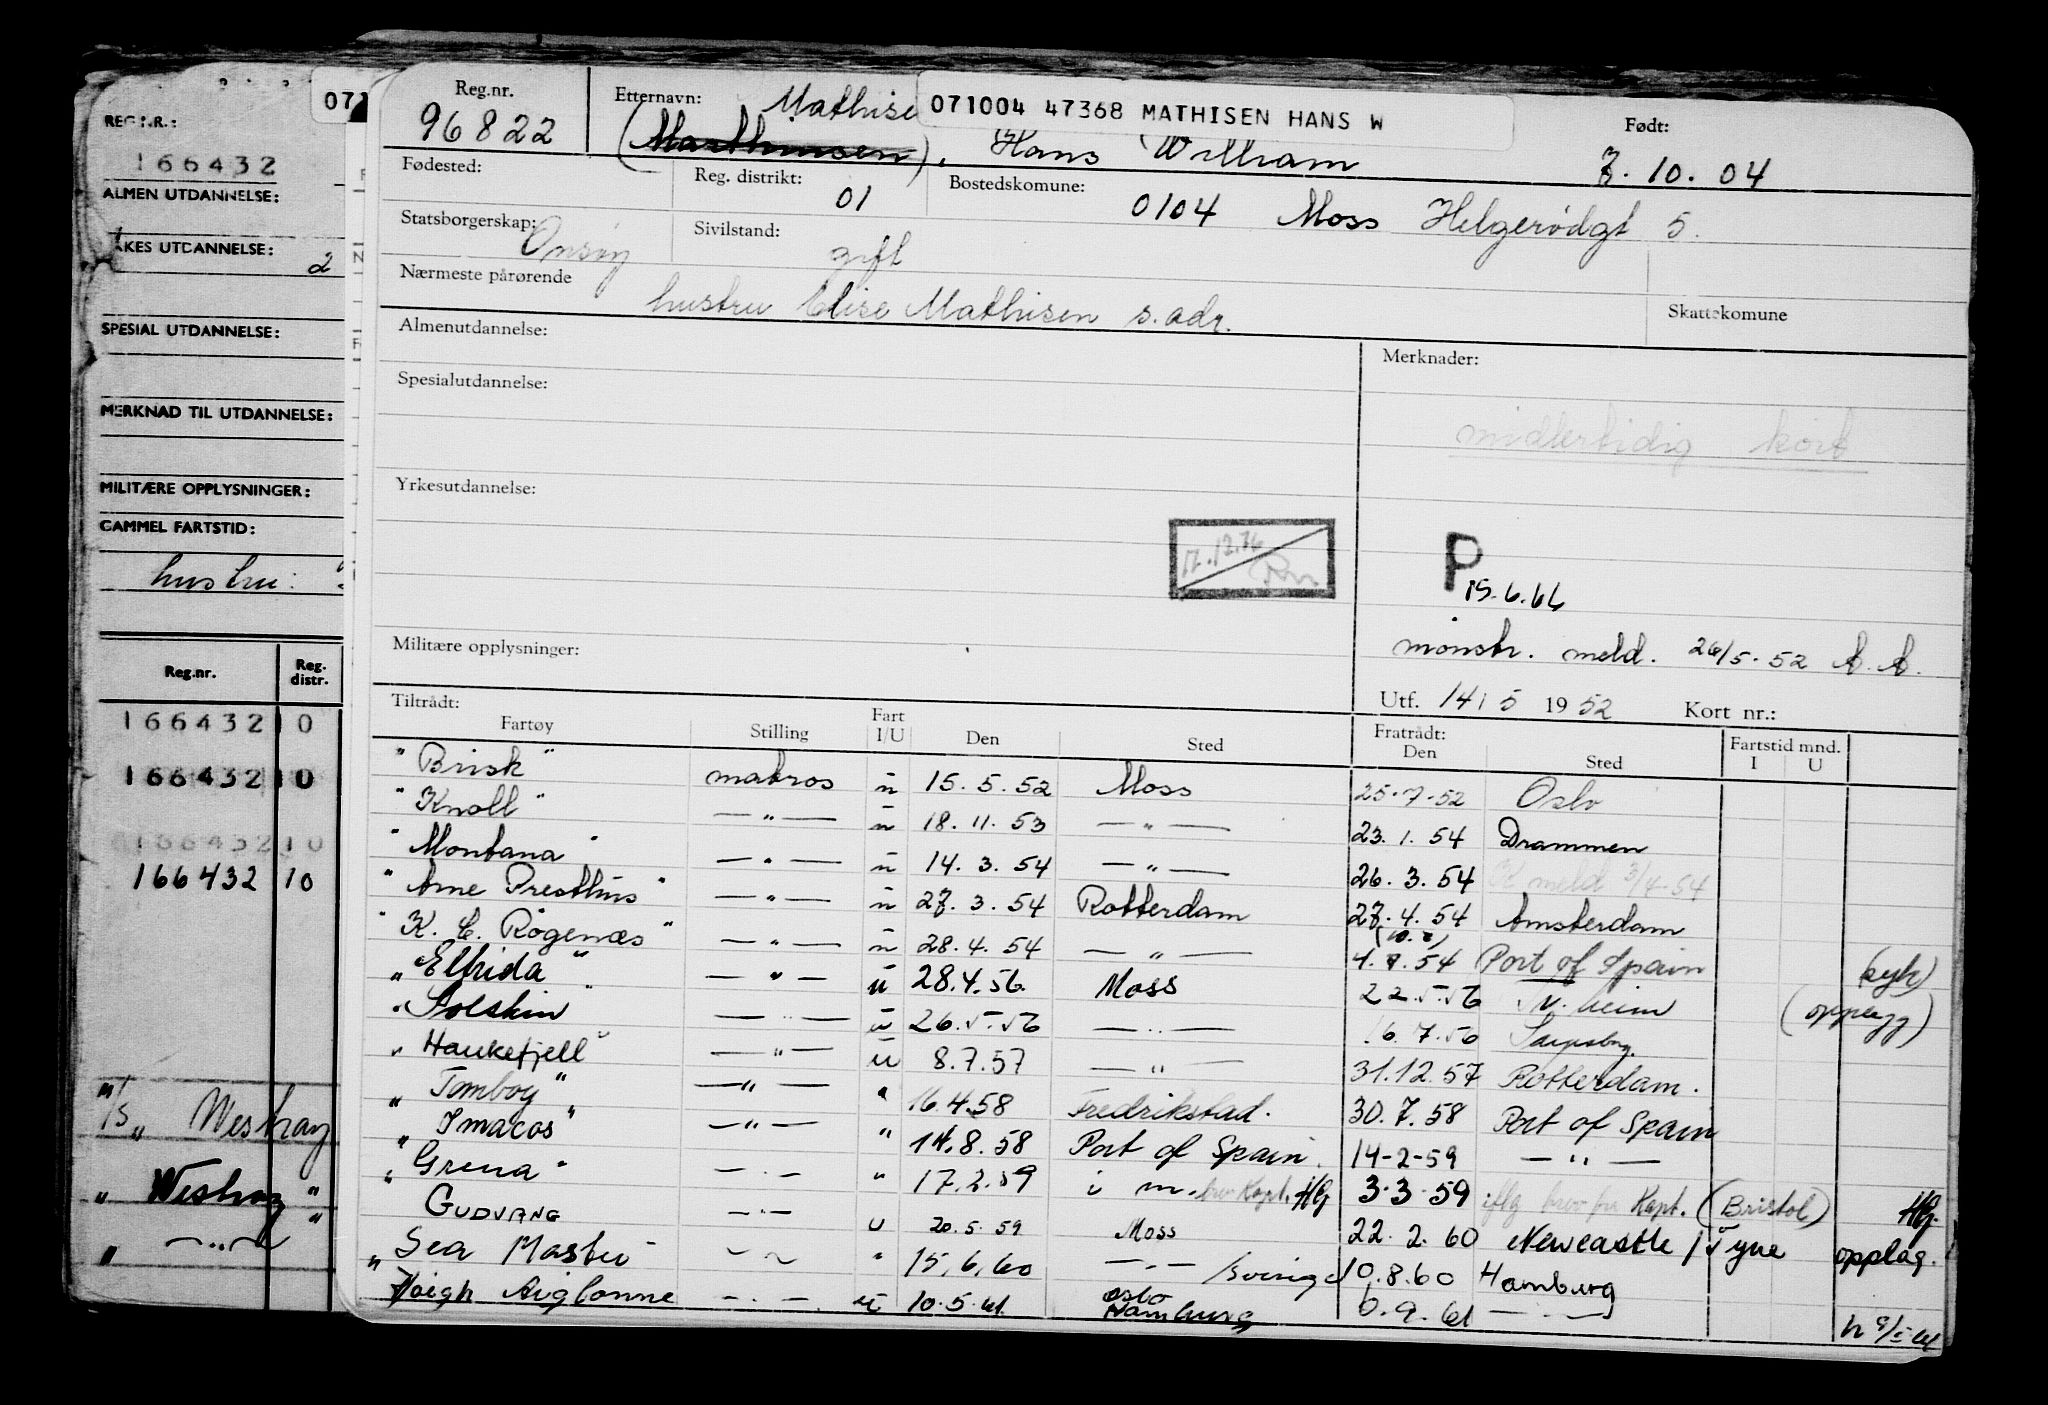 REG.NR.:
071
166432
ALMEN UTDANNELSE:
YRKES UTDANNELSE:
2
SPESIAL UTDANNELSE:
MERKNAD TIL UTDANNELSE:
MILITÆRE OPPLYSNINGER:
GAMMEL FARTSTID:
hustru:
Reg.nr. Reg. distr.
166432 10
166432 10
166432 10
166432 10
M/S „ Westray
„ Westray "
„ —„—
Reg.nr. 96822
Etternavn: Mathise
071004 47368 MATHISEN HANS W
(Marthinsen), Hans William
Født: 7. 10. 04
Fødested:
Reg. distrikt: 01
Bostedskomune: 0104 Moss Helgerødgt 5.
Statsborgerskap: Onsøy
Sivilstand: gift
Nærmeste pårørende
hustru Elise Mathisen s. adr.
Skattekomune
Almenutdannelse:
Merknader:
Spesialutdannelse:
midlertidig kort
Yrkesutdannelse:
17.12.76
P
15.6.66
Militære opplysninger:
mønstr. meld. 26/5-52 A. A.
Utf. 14/5 1952 Kort nr.:
Tiltrådt: Fratrådt: Fartstid mnd.
Fartøy Stilling Fart I/U Den Sted Den Sted I U
"Brisk" matros u 15. 5. 52 Moss 25-7-52 Oslo
"Knoll" —"— u 18. 11. 53 —"— 23. 1. 54 Drammen
"Montana" —"— u 14. 3. 54 —"— 26. 3. 54 meld 3/4-54
"Arne Presthus" —"— u 27. 3. 54 Rotterdam 27. 4. 54 Amsterdam
"K. C. Rogenæs" —"— u 28. 4. 54 —"— 4. 7. 54 Port of Spain (syk)
"Elfrida" —"— u 28.4.56. Moss 22.5.56 (opplegg)
"Solskin" —"— u 26.5.56 —"— 16.7.56 Sarpsborg.
"Haukefjell" —"— u 8.7.57 —"— 31.12.57 Rotterdam.
"Tomboy" —"— " 16.4.58 Fredrikstad. 30.7.58 Port of Spain
"Imacos" —"— " 14.8.58 Port of Spain. 14-2-59 —"—
"Grena" —"— " 17.2.59 i m. brev Kapt. HG 3-3-59 iflg brev fra Kapt. (Bristol) HG.
GUDVANG —"— u 20.5.59 Moss 22. 2. 60 Newcastle / Tyne opplag.
"Sea Master " 15.6.60 —"— 10.8.60 Hamburg
Aiglonne —"— u 10.5.61 Oslo Hamburg 6.9.61 —"—